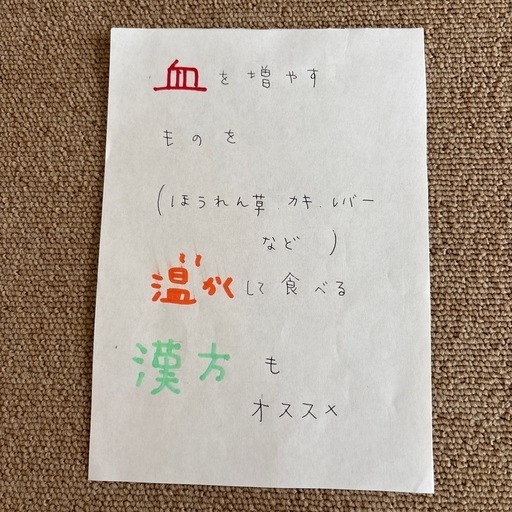 血を増やす
ものを
(ほうれん草 カキ.レバー
など)
温かくして食べる
漢方も
オススメ